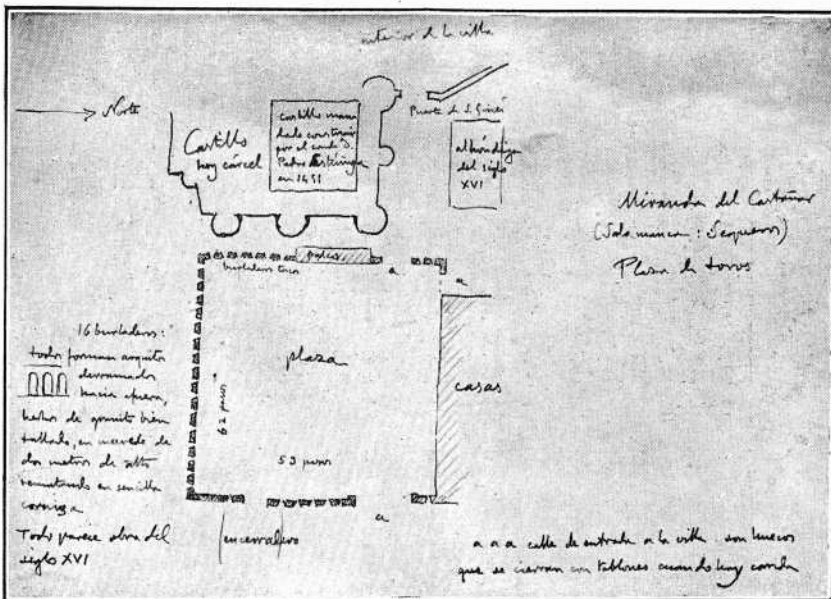 interior de la villa
Norte
Castillo
hoy cárcel
castillo man
dado construir
por el conde D.
Pedro Estúñiga
en 1451
Puerta de S. Ginés
alhóndiga
del siglo
XVI
Miranda del Castañar
(Salamanca: Sequeros)
Plaza de toros
burladeros toros
palco
a
a
16 burladeros:
todos forman arquitos
derramados
hacia afuera,
hechos de granito bien
tallado, en muro de
dos metros de alto
rematando en sencilla
corniza
Todo parece obra del
siglo XVI
plaza
62 pasos
53 pasos
casas
encerradero
a
a a a calle de entrada a la villa son huecos
que se cierran con tablones cuando hay corrida